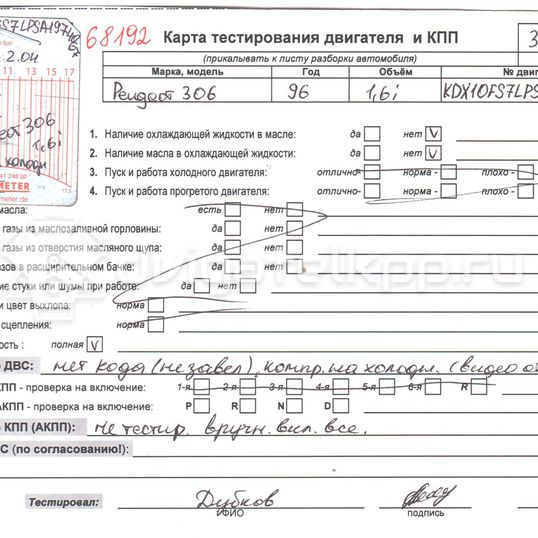 68192
Карта тестирования двигателя и КПП
(прикалывать к листу разборки автомобиля)
Марка, модель Год Объём № двиг
Peugeot 306 96 1,6i KDX10FS7LPS
2.04
306
1,6i
холодн
METER
meter.de
1. Наличие охлаждающей жидкости в масле: да нет V
2. Наличие масла в охлаждающей жидкости: да нет V
3. Пуск и работа холодного двигателя: отлично- норма - плохо -
4. Пуск и работа прогретого двигателя: отлично- норма - плохо -
масла: есть нет
газы из маслозаливной горловины: да нет
газы из отверстия масляного щупа: да нет
зов в расширительном бачке: да нет
ие стуки или шумы при работе: да нет
и цвет выхлопа: норма
сцепления: норма
ость : полная V
ДВС: нет кода (незавел), компр. на холодн. (видео
КПП - проверка на включение: 1-я 2-я 3-я 4-я 5-я 6-я R
АКПП - проверка на включение: P R N D
КПП (АКПП): не тестир. вручн. вкл. все.
С (по согласованию!):
Тестировал: Дубков
ФИО подпись
dvigatelkpp.ru